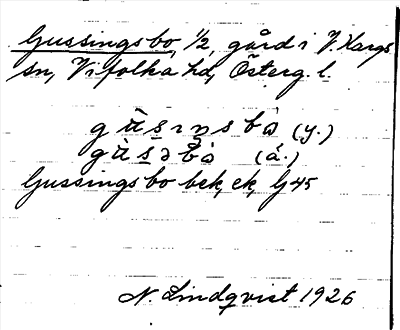 Gussingsbo, 1/2, gård i V. Hargs
sn, Vifolka hd, Österg. l.
gùsıŋsbò (y.)
gùsəbò (ä.)
Gussingsbo bek, ek, Gj 45
N. Lindqvist 1926